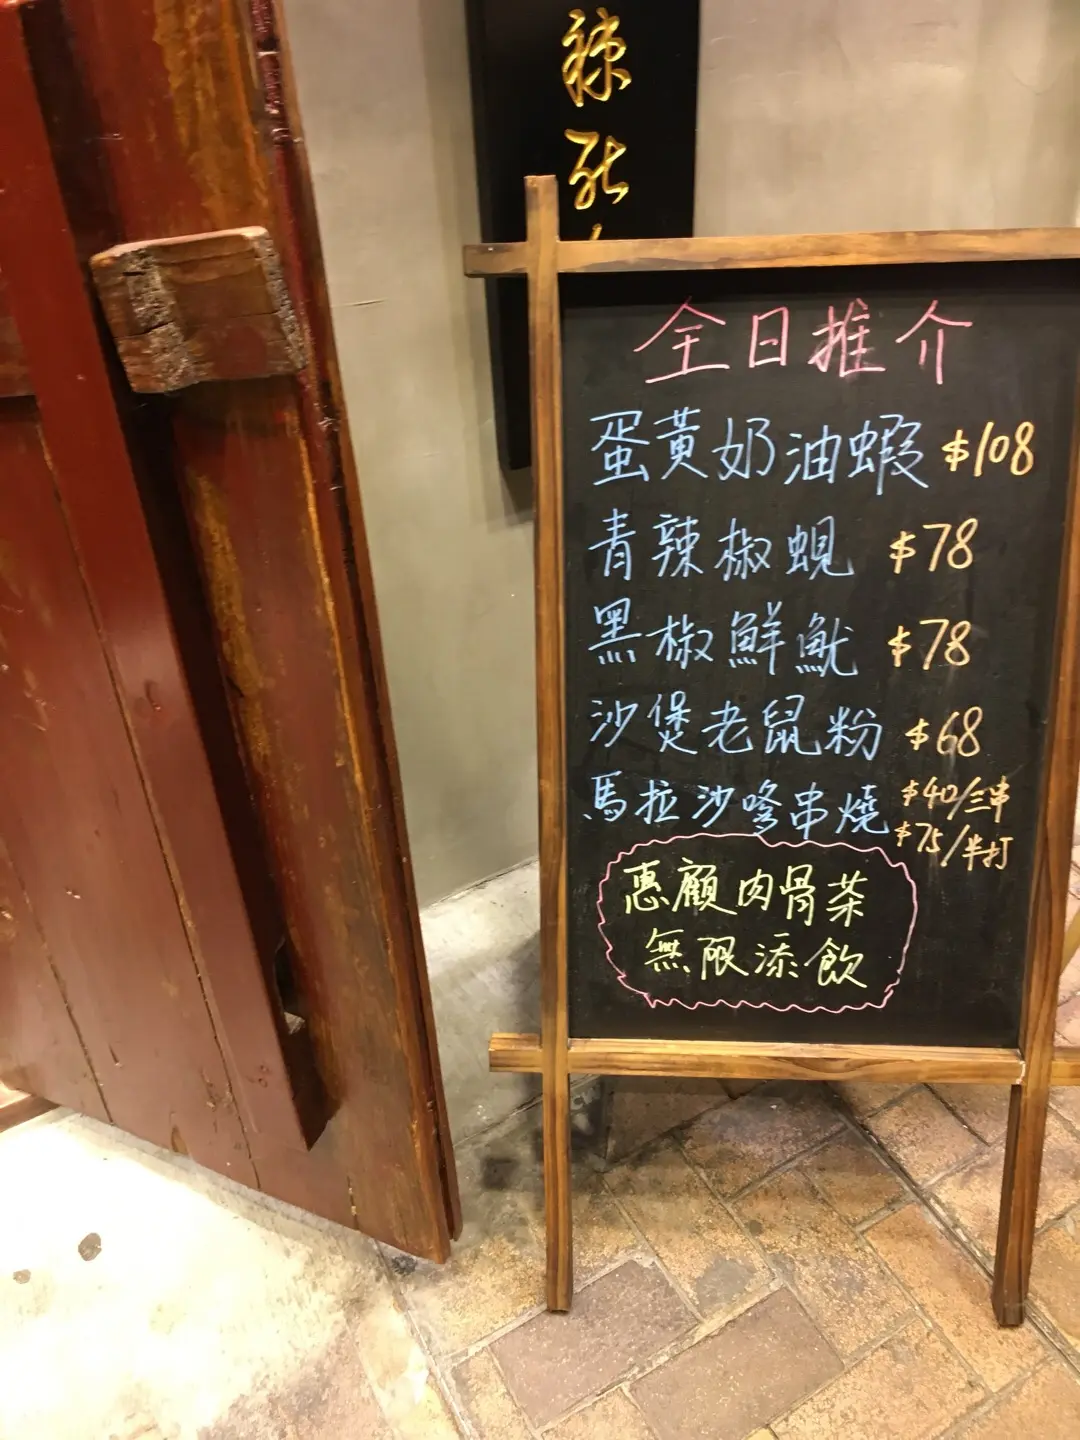 全日推介
蛋黃奶油蝦 $108
青辣椒蜆 $78
黑椒鮮魷 $78
沙煲老鼠粉 $68
馬拉沙嗲串燒 $40/三串
$75/半打
惠顧肉骨茶
無限添飲